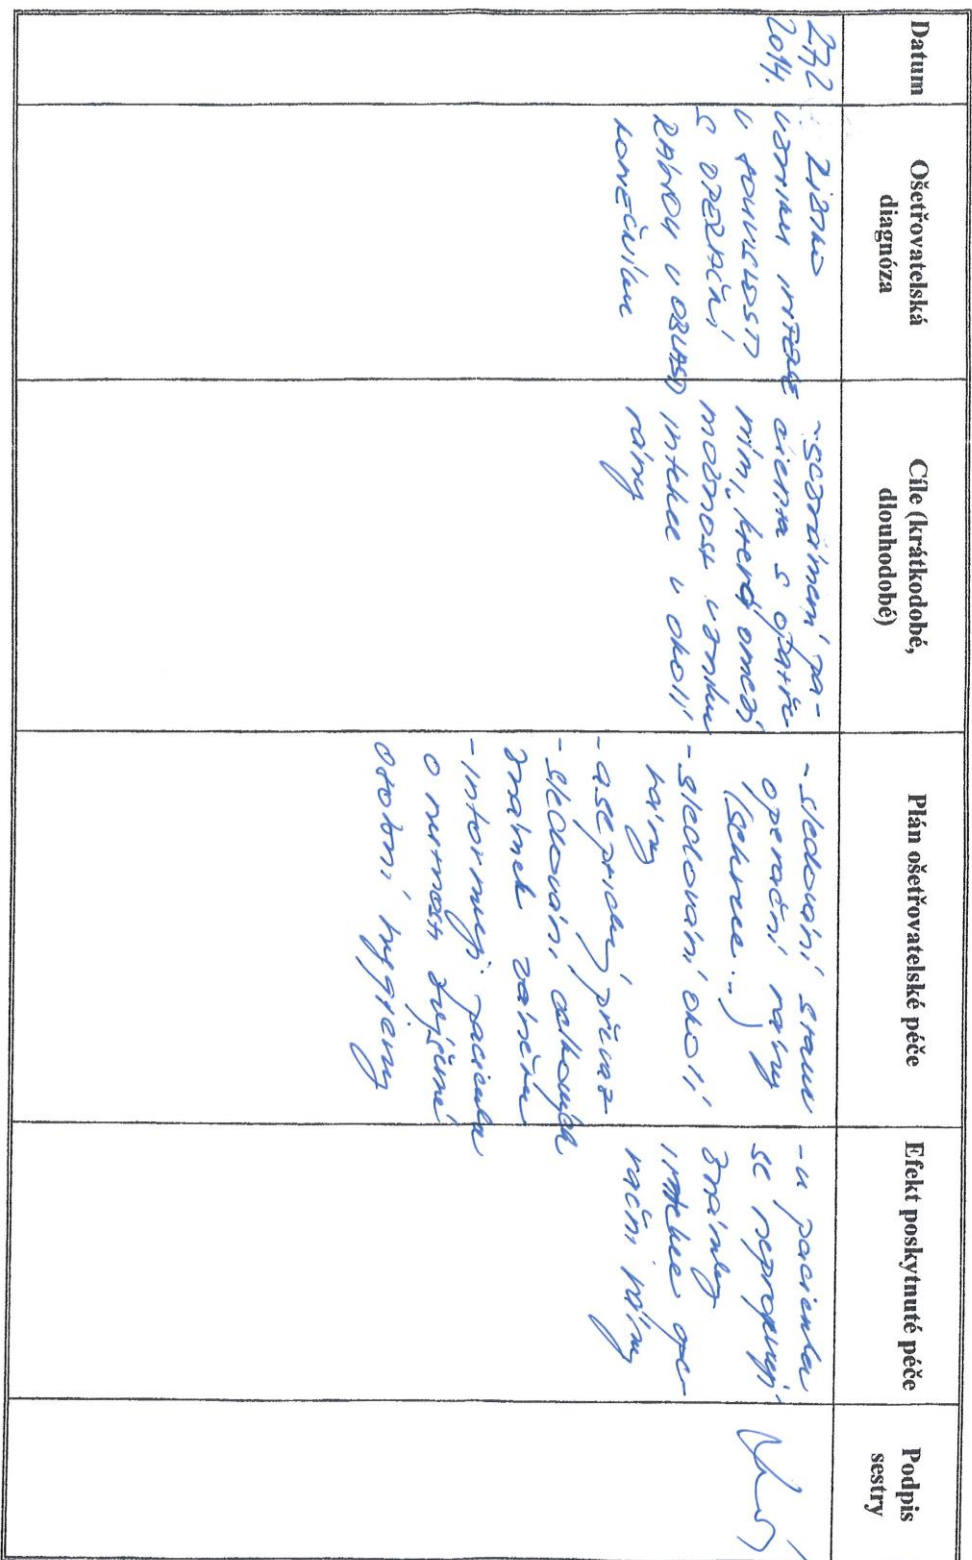 Datum
Ošetřovatelská
diagnóza
Cíle (krátkodobé,
dlouhodobé)
Plán ošetřovatelské péče
Efekt poskytnuté péče
Podpis
sestry
27.2
2014.
riziko
vzniku infekce
v souvislosti
s operační
ránou v oblasti
konečníku
-seznámení pa-
cienta s opatře
ním, které omezí
možnost vzniku
infekce v okolí
rány
-sledování stavu
operační rány
(sekrece...)
-sledování okolí
rány
-aseptický převaz
-sledování celkových
známek zánětu
-informuji pacienta
o nutnosti zvýšené
osobní hygieny
-u pacienta
se neprojevují
známky
infekce ope-
rační rány